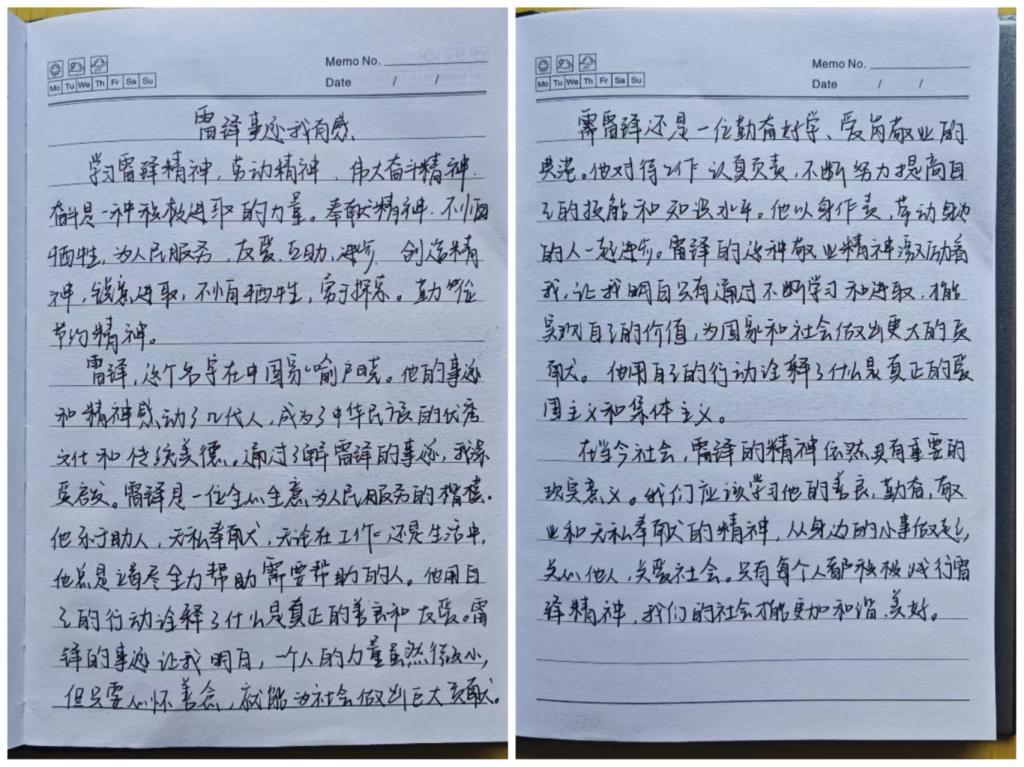 Memo No.
Mo Tu We Th Fr Sa Su
Date / /
雷锋事迹我有感
学习雷锋精神，劳动精神，伟大奋斗精神.
奋斗是一种积极进取的力量。奉献精神.不怕
牺牲，为人民服务，友爱.互助，进步 创造精
神，锐意进取，不怕牺牲，富于探索。勤俭
节约精神。
雷锋，这个名字在中国家喻户晓。他的事迹
和精神感动了几代人，成为了中华民族的优秀
文化和传统美德。通过了解雷锋的事迹，我深
受启发。雷锋是一位全心全意为人民服务的楷模.
他乐于助人，无私奉献，无论在工作 还是生活中，
他总是竭尽全力帮助需要帮助的人。他用自
己的行动诠释了什么是真正的善良和友爱。雷
锋的事迹让我明白，一个人的力量虽然很微小，
但只要心怀善念，就能为社会做出巨大贡献。
Memo No.
Mo Tu We Th Fr Sa Su
Date / /
雷锋还是一位勤奋好学、爱岗敬业的
典范。他对待工作认真负责，不断努力提高自
己的技能和知识水平。他以身作责，带动身边
的人一起进步。雷锋的这种敬业精神激励着
我，让我明白只有通过不断学习和进取.才能
实现自己的价值，为国家和社会做出更大的贡
献。他用自己的行动诠释了什么是真正的爱
国主义和集体主义。
在当今社会，雷锋的精神依然具有重要的
现实意义。我们应该学习他的善良，勤奋，敬
业和无私奉献的精神，从身边的小事做起，
关心他人，关爱社会。只有每个人都积极践行雷
锋精神，我们的社会才能更加和谐.美好。